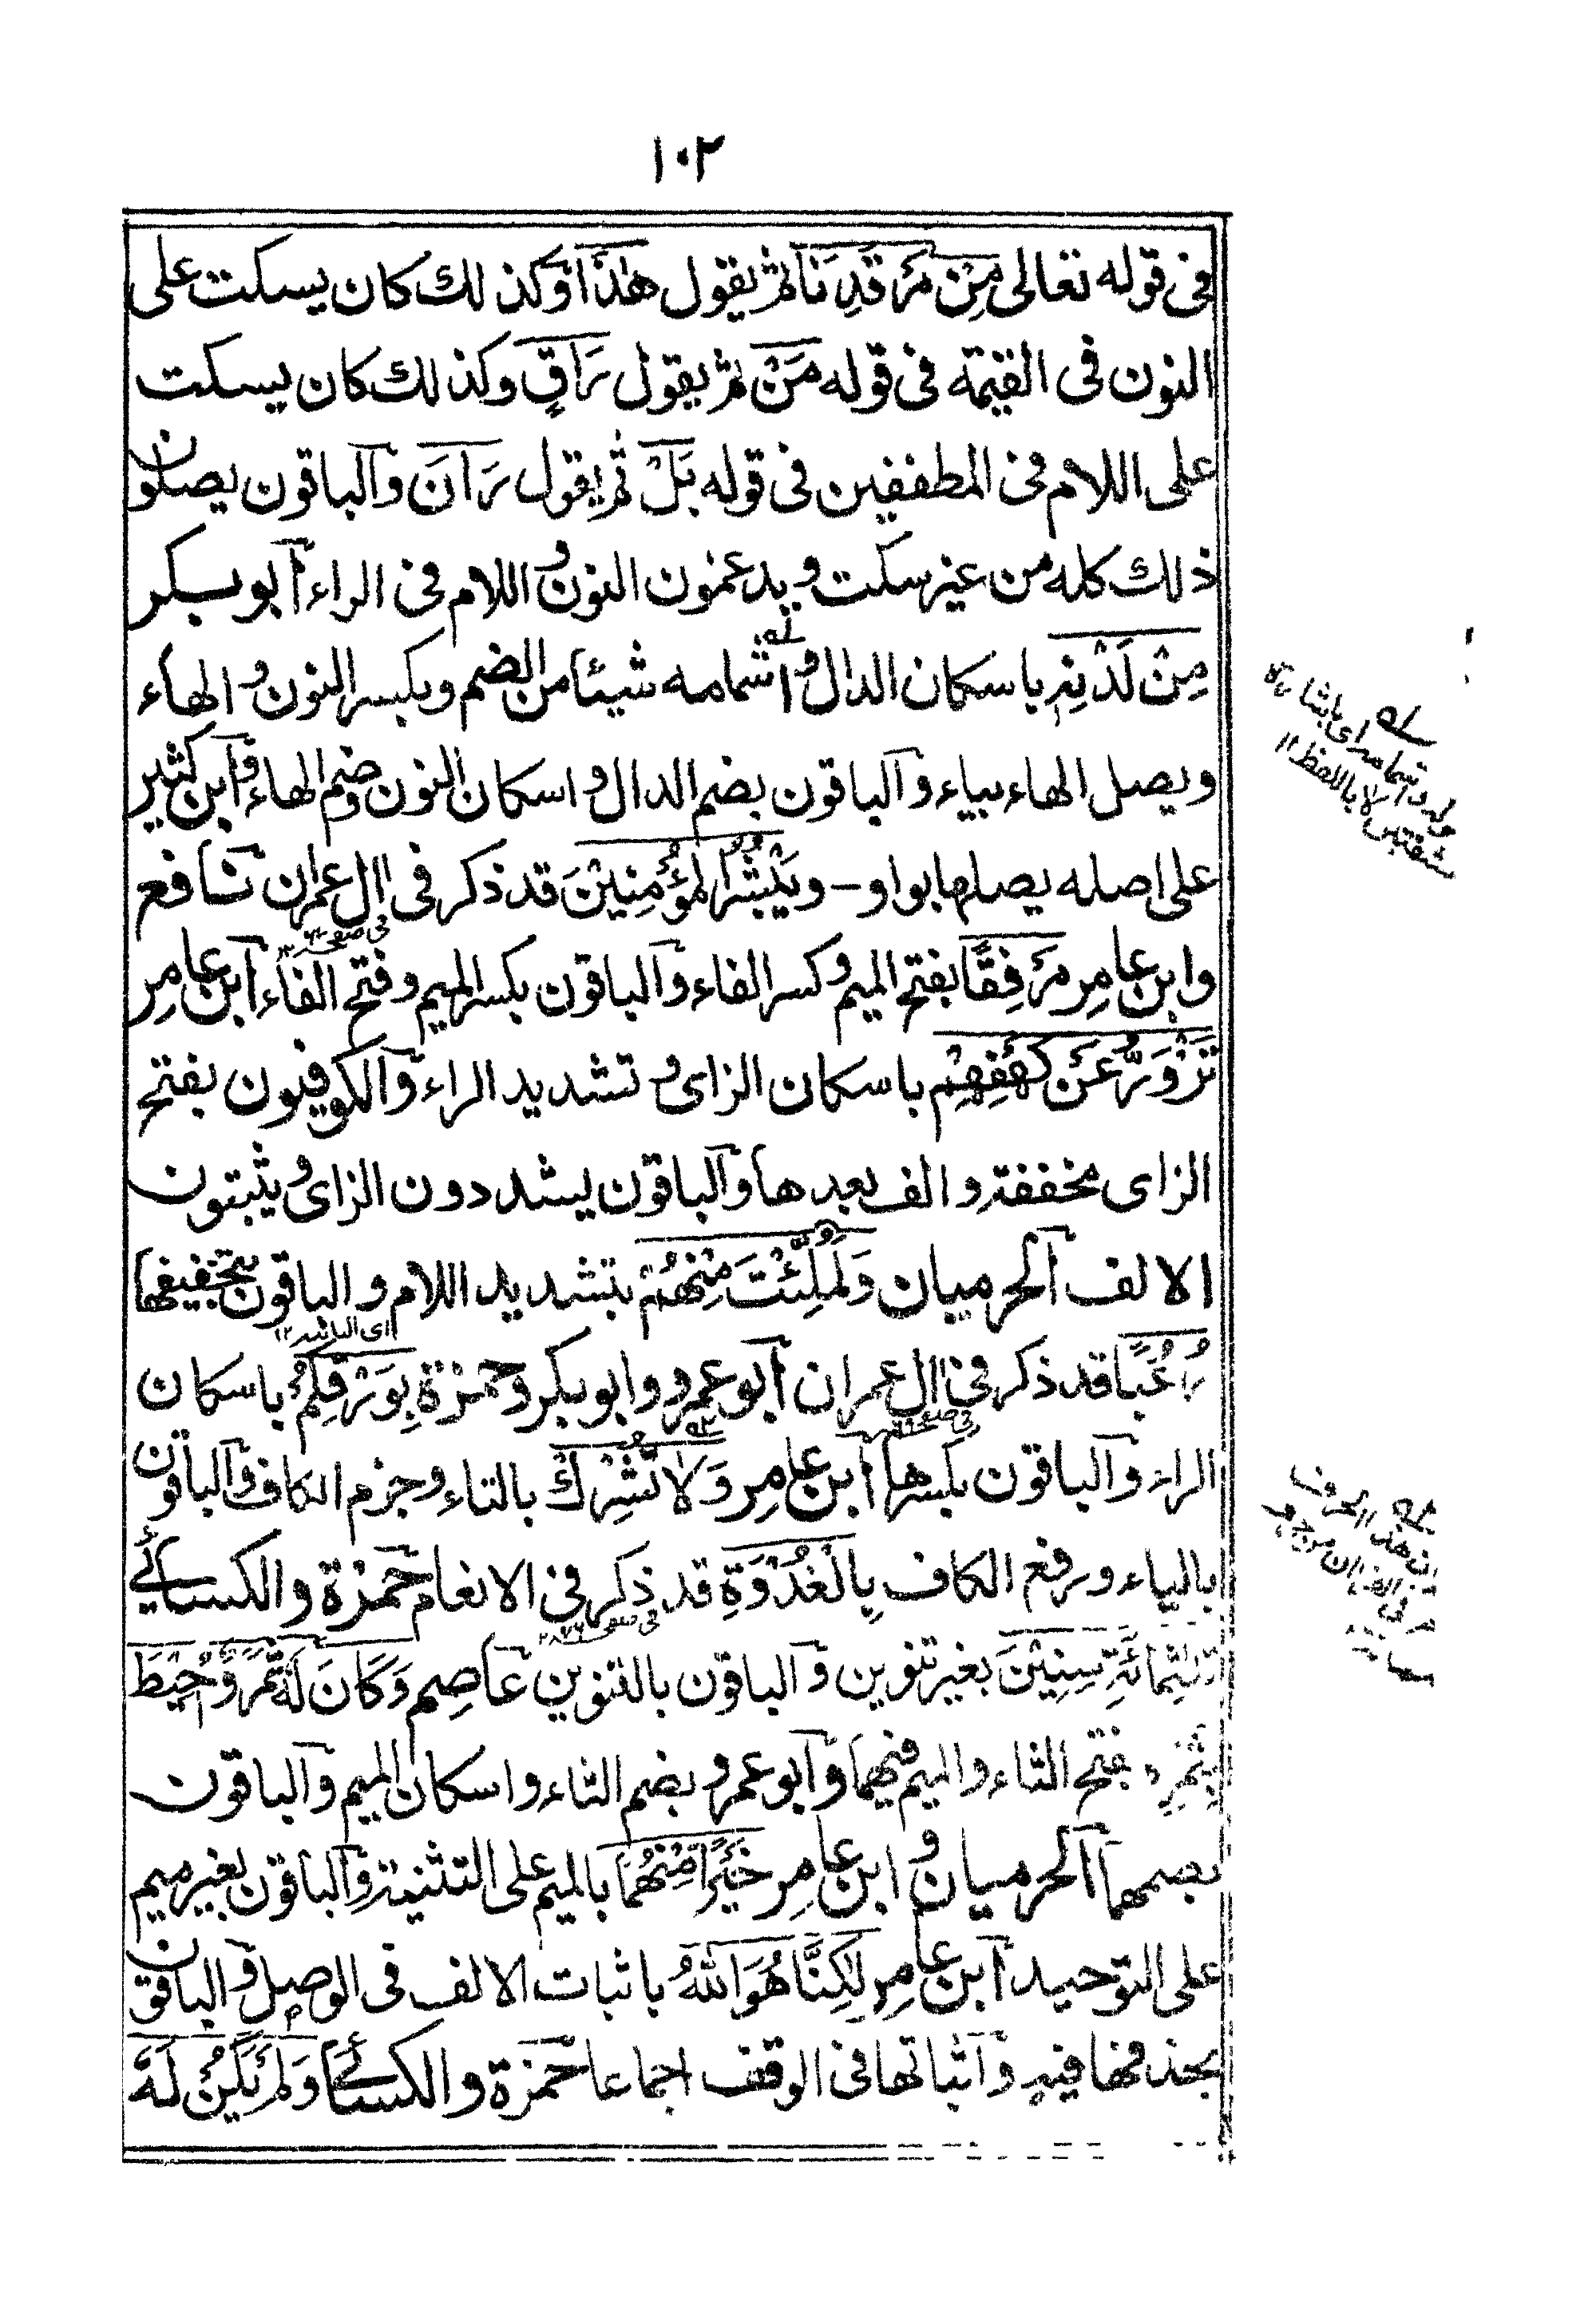 ١٠٢
فى قوله تعالى مِنْ مَّرْقَدِنَا ثم يقول هٰذَا وكذلك كان يسكت على
النون فى القيٰمة فى قوله مَنْ ثم يقول رَاقٍ وكذلك كان يسكت
على اللام فى المطففين فى قوله بَلْ ثم يقول رَانَ والباقون يصلون
ذلك كله من غير سكت ويدغمون النون واللام فى الراء ابو بكر
مِنْ لَدْنِهٖ باسكان الدال واشمامه شيئا من الضم وبكسر النون والهاء
ويصل الهاء بياء والباقون بضم الدال واسكان النون وضم الهاء وابن كثير
على اصله يصلها بواو – ويَبْشُرُ الْمُؤْمِنِيْنَ قد ذكر فى اٰل عمران نافع
وابن عامر مَرْفِقًا بفتح الميم وكسر الفاء والباقون بكسر الميم وفتح الفاء ابن عامر
تَزْوَرُّ عَنْ كَهْفِهِمْ باسكان الزاى وتشديد الراء والكوفيون بفتح
الزاى مخففة والف بعدها والباقون يشددون الزاى ويثبتون
الالف الحرميان وَلَمُلِّئْتَ مِنْهُمْ بتشديد اللام والباقون بتخفيفها
رُعُبًا قد ذكر فى اٰل عمران ابو عمرو وابو بكر وحمزة بِوَرْقِكُمْ باسكان
الراء والباقون بكسرها ابن عامر وَلَا تُشْرِكْ بالتاء وجزم الكاف والباقون
بالياء ورفع الكاف بِالْغُدْوَةِ قد ذكر فى الانعام حمزة والكسائى
ثلٰثمائَةِ سِنِيْنَ بغير تنوين والباقون بالتنوين عاصم وَكَانَ لَهٗ ثَمَرٌ وَّاُحِيْطَ
بِثَمَرِهٖ بفتح الثاء والميم فيهما وابو عمرو بضم الثاء واسكان الميم والباقون
بضمهما الحرميان وابن عامر خَيْرًا مِنْهُمَا بالميم على التثنية والباقون بغير ميم
على التوحيد ابن عامر لٰكِنَّا هُوَ اللّٰهُ باثبات الالف فى الوصل والباقون
بحذفها فيه واثباتها فى الوقف اجماعا حمزة والكسائى وَلَمْ يَكُنْ لَهٗ